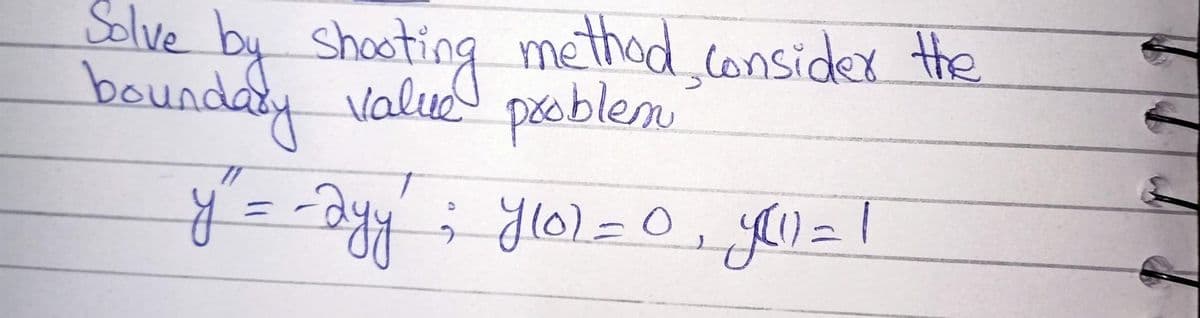 Solve by shooting method, consider the
boundary value problem
y'' = -2yy' ; y(0) = 0, y(1) = 1